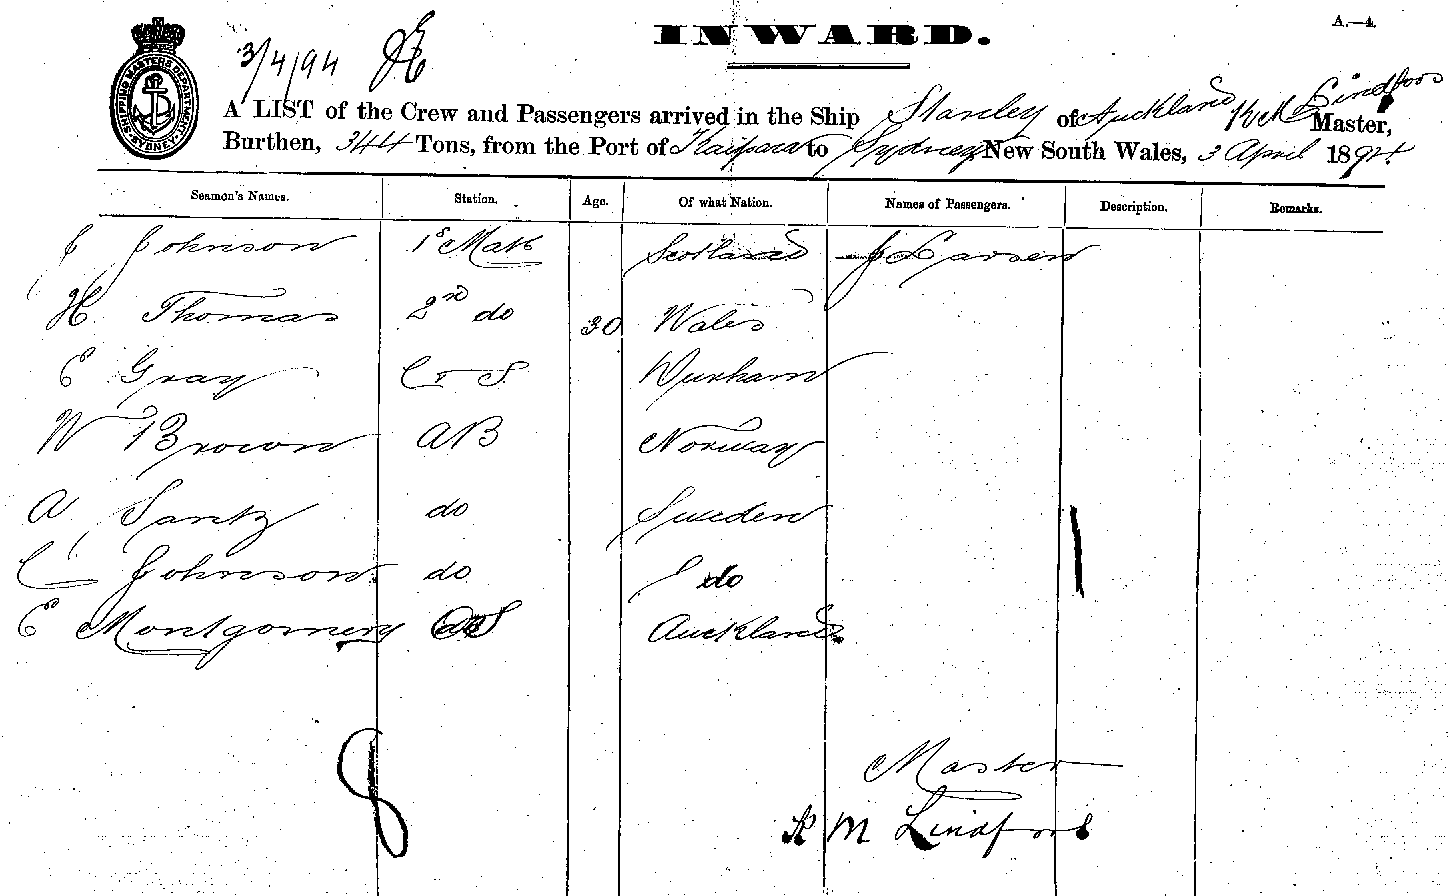 INWARD.
A.—4.
3/4/94
SHIPPING MASTERS DEPARTMENT SYDNEY
A LIST of the Crew and Passengers arrived in the Ship Stanley of Auckland Lindfors Master,
Burthen, 344 Tons, from the Port of Kaipara to Sydney New South Wales, 3 April 1894
Seamen's Names. Station. Age. Of what Nation. Names of Passengers. Description. Remarks.
J Johnson 1s Mate Scotland J Larsen
H Thomas 2nd do 30 Wales
E Gray C & S Durham
W Brown AB Norway
A Santz do Sweden
C Johnson do do
E Montgomery OS Auckland
8
Master
M Lindfors